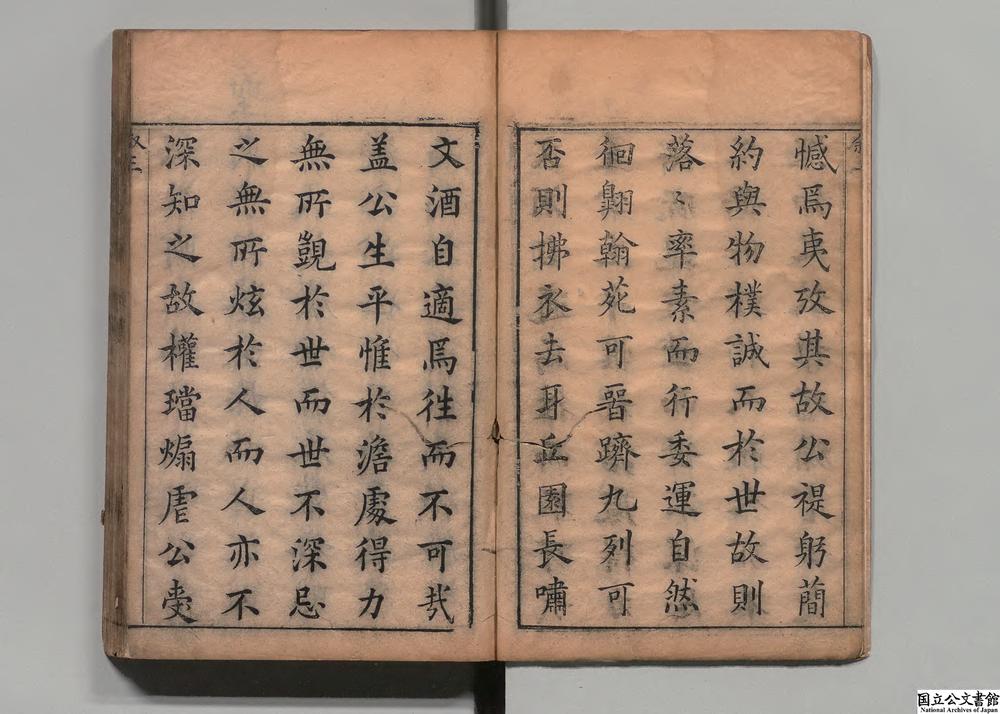 憾焉夷攷其故公禔躬簡
約與物樸誠而於世故則
落〻率素而行委運自然
徊翺翰苑可晉躋九列可
否則拂衣去耳丘園長嘯
文酒自適焉徃而不可㢤
盖公生平惟於澹䖏得力
無所覬於世而世不深忌
之無所炫於人而人亦不
深知之故權璫煽虐公䘮
国立公文書館
National Archives of Japan